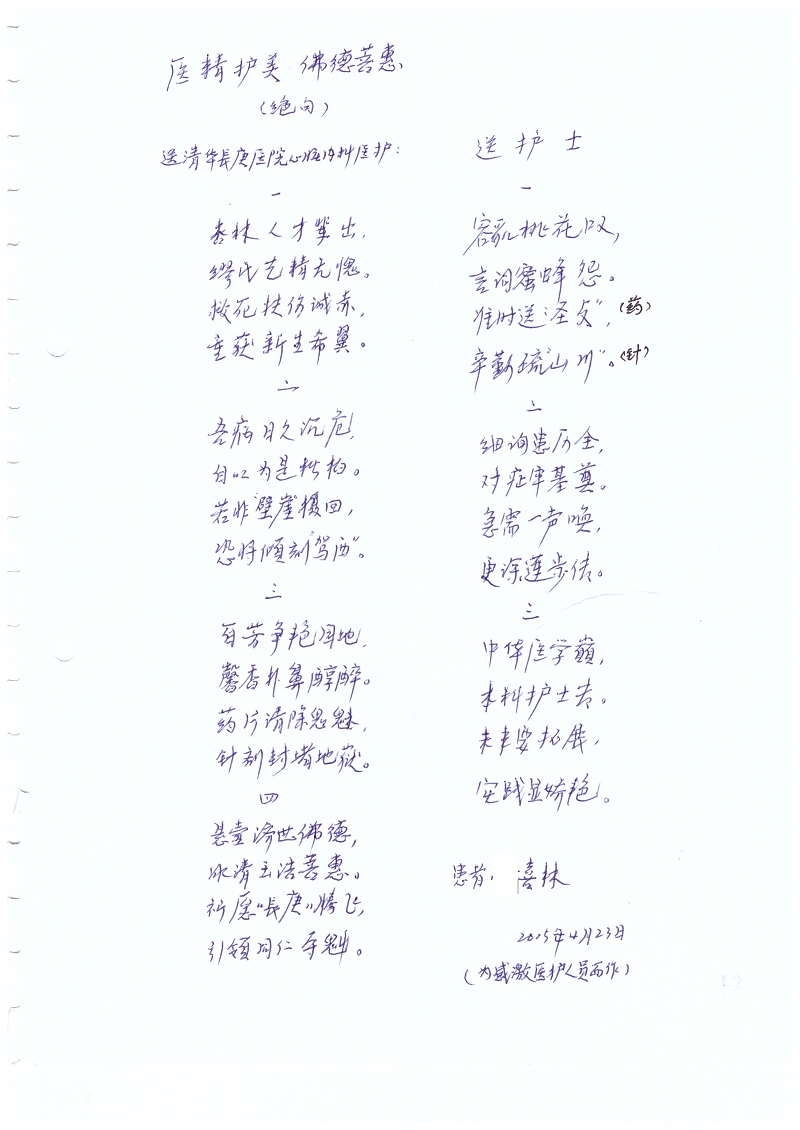 医精护美 佛德善惠
(绝句)
送清华長庚医院心脏内科医护:
一
杏林人才辈出,
缪氏艺精无愧。
救死扶伤诚赤,
重获新生希翼。
二
吾病日久沉危,
自以为是
若非"壁崖"摄回,
恐将倾刻"驾西"。
三
百芳争艳园地,
馨香扑鼻醇醉。
药片清除恶魅,
针剂封堵地獄。
四
悬壶济世佛德,
冰清玉洁善惠。
祈愿"長庚"腾飞,
引领同仁夺魁。
送护士
一
容乱桃花叹,
言词蜜蜂怨。
准时送"圣文",(药)
辛勤疏"山川"。(针)
二
细询患历全,
对症牢基奠。
急需一声唤,
更深莲步传。
三
中华医学巅,
本科护士专。
未来要拓展,
实践显娇艳。
患者:喜林
2015年4月23日
(为感激医护人员而作)